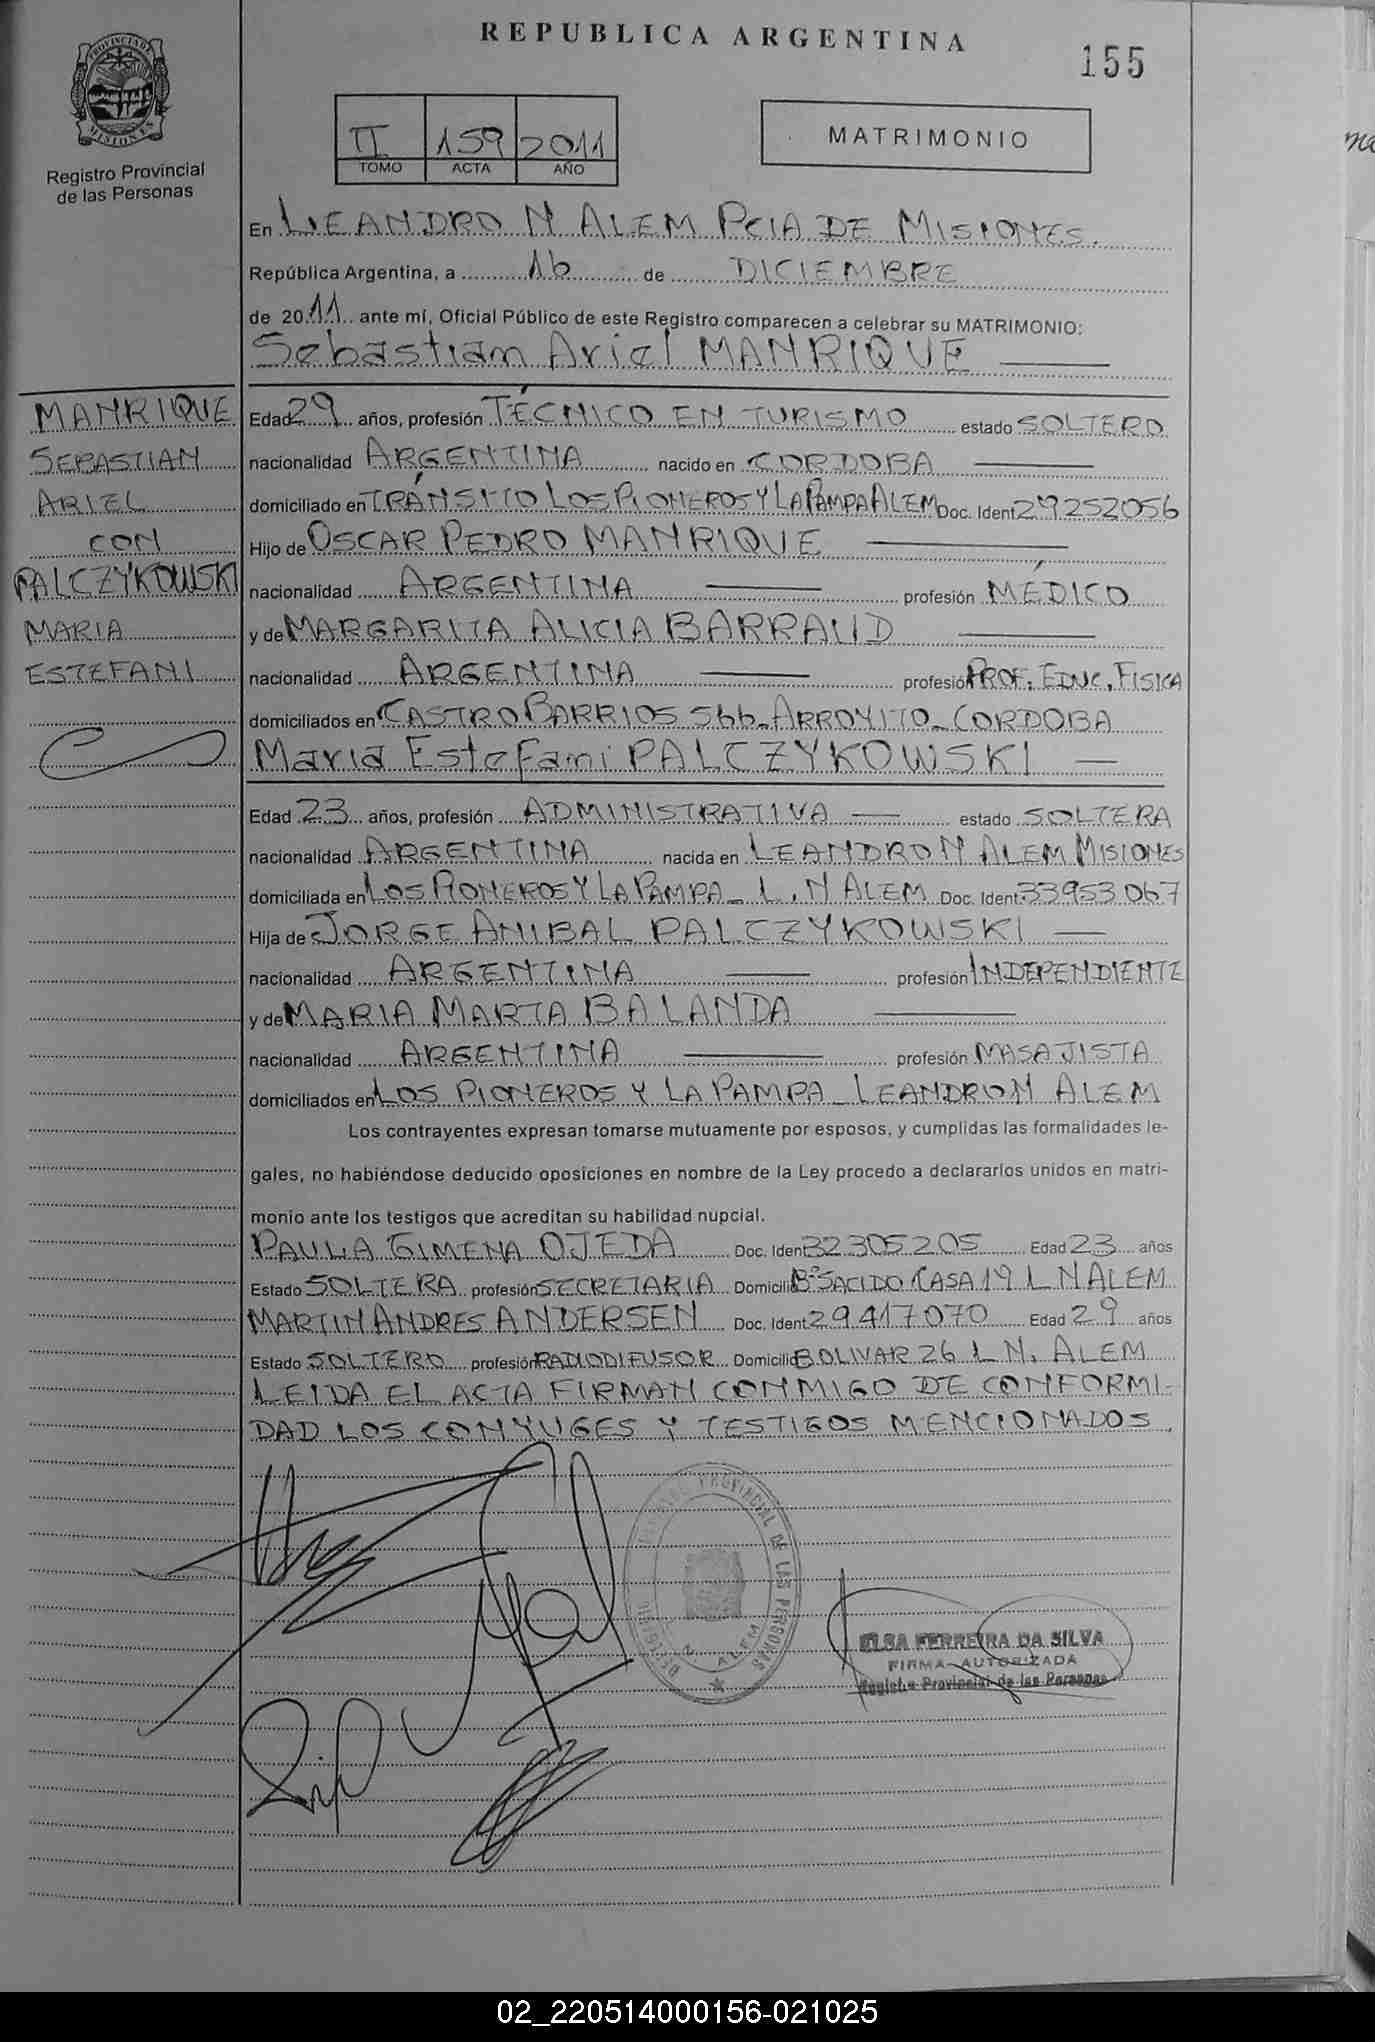 REPUBLICA ARGENTINA
155
PROVINCIA DE MISIONES
Registro Provincial
de las Personas
II 159 2011
TOMO ACTA AÑO
MATRIMONIO
En LEANDRO N ALEM PCIA DE MISIONES.
República Argentina, a 16 de DICIEMBRE
de 2011 ante mí, Oficial Público de este Registro comparecen a celebrar su MATRIMONIO:
Sebastian Ariel MANRIQUE
MANRIQUE
SEBASTIAN
ARIEL
CON
PALCZYKOWSKI
MARIA
ESTEFANI
Edad 29 años, profesión TÉCNICO EN TURISMO estado SOLTERO
nacionalidad ARGENTINA nacido en CORDOBA
domiciliado en TRÁNSITO LOS PIONEROS Y LA PAMPA ALEM Doc. Ident 29252056
Hijo de OSCAR PEDRO MANRIQUE
nacionalidad ARGENTINA profesión MÉDICO
y de MARGARITA ALICIA BARRAUD
nacionalidad ARGENTINA profesión PROF. EDUC. FISICA
domiciliados en CASTRO BARRIOS 566-ARROYITO-CORDOBA
Maria Estefani PALCZYKOWSKI
Edad 23 años, profesión ADMINISTRATIVA estado SOLTERA
nacionalidad ARGENTINA nacida en LEANDRO N ALEM MISIONES
domiciliada en LOS PIONEROS Y LA PAMPA - L. N ALEM Doc. Ident. 33953067
Hija de JORGE ANIBAL PALCZYKOWSKI
nacionalidad ARGENTINA profesión INDEPENDIENTE
y de MARIA MARTA BALANDA
nacionalidad ARGENTINA profesión MASAJISTA
domiciliados en LOS PIONEROS Y LA PAMPA - LEANDRO N ALEM
Los contrayentes expresan tomarse mutuamente por esposos, y cumplidas las formalidades le-
gales, no habiéndose deducido oposiciones en nombre de la Ley procedo a declararlos unidos en matri-
monio ante los testigos que acreditan su habilidad nupcial.
PAULA GIMENA OJEDA Doc. Iden 32305205 Edad 23 años
Estado SOLTERA profesión SECRETARIA Domicilio B° SACIDO CASA 19 L N ALEM
MARTIN ANDRES ANDERSEN Doc. Ident 29417070 Edad 29 años
Estado SOLTERO profesión RADIODIFUSOR Domicilio BOLIVAR 26 L N. ALEM
LEIDA EL ACTA FIRMAN CONMIGO DE CONFORMI-
DAD LOS CONYUGES Y TESTIGOS MENCIONADOS.
PROVINCIAL DE LAS PERSONAS
N. ALEM
ELSA FERREIRA DA SILVA
FIRMA AUTORIZADA
Registro Provincial de las Personas
02_220514000156-021025